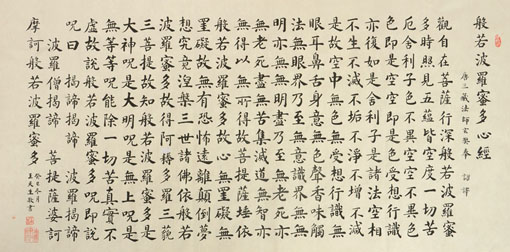 般若波羅蜜多心經
唐三藏法師玄奘奉 詔譯
觀自在菩薩行深般若波羅蜜
多時照見五蘊皆空度一切苦
厄舍利子色不異空空不異色
色即是空空即是色受想行識
亦復如是舍利子是諸法空相
不生不滅不垢不淨不增不減
是故空中無色無受想行識無
眼耳鼻舌身意無色聲香味觸
法無眼界乃至無意識界無無
明亦無無明盡乃至無老死亦
無老死盡無苦集滅道無智亦
無得以無所得故菩提薩埵依
般若波羅蜜多故心無罣礙無
罣礙故無有恐怖遠離顛倒夢
想究竟涅槃三世諸佛依般若
波羅蜜多故得阿耨多羅三藐
三菩提故知般若波羅蜜多是
大神呪是大明呪是無上呪是
無等等呪能除一切苦真實不
虛故說般若波羅蜜多呪即說
呪曰 揭諦揭諦 波羅揭諦
波羅僧揭諦 菩提薩婆訶
摩訶般若波羅蜜多